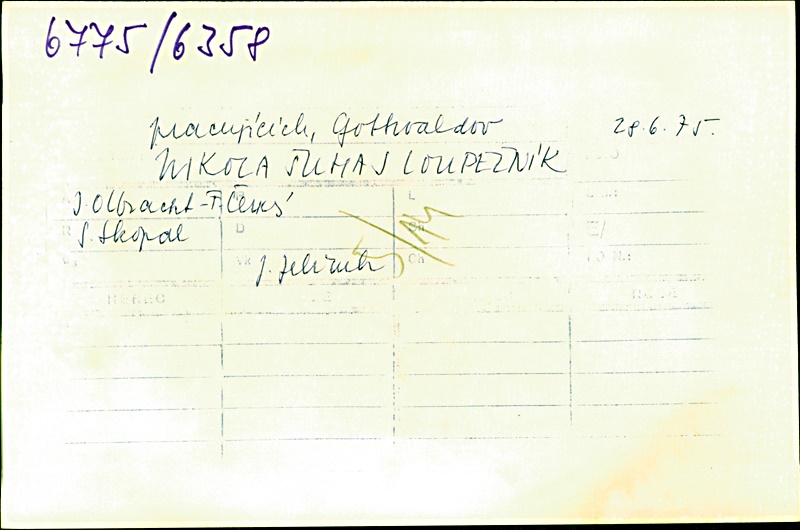 6775/6358
pracujících, Gottwaldov 28.6.75.
NIKOLA ŠUHAJ LOUPEŽNÍK
I. Olbracht - F. Černý
S. Skopal
J. Jelínek
5/14
D
L
Ch